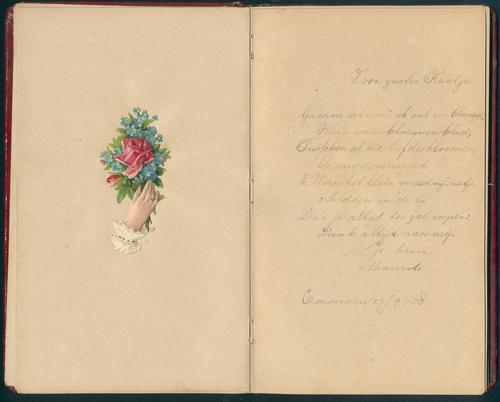 Voor zuster Kaatje.
Gaarne strooi ik ook een bloempje,
Klein van bloem en blad,
Tusschen al die liefdesbloemen,
'k Werp het klein vergeet mij nietje
Midden in de
Da's je altijd toe zal roepen:
Denk altijd aan mij.
Je broer
Maurits
Coevorden 27/9/08